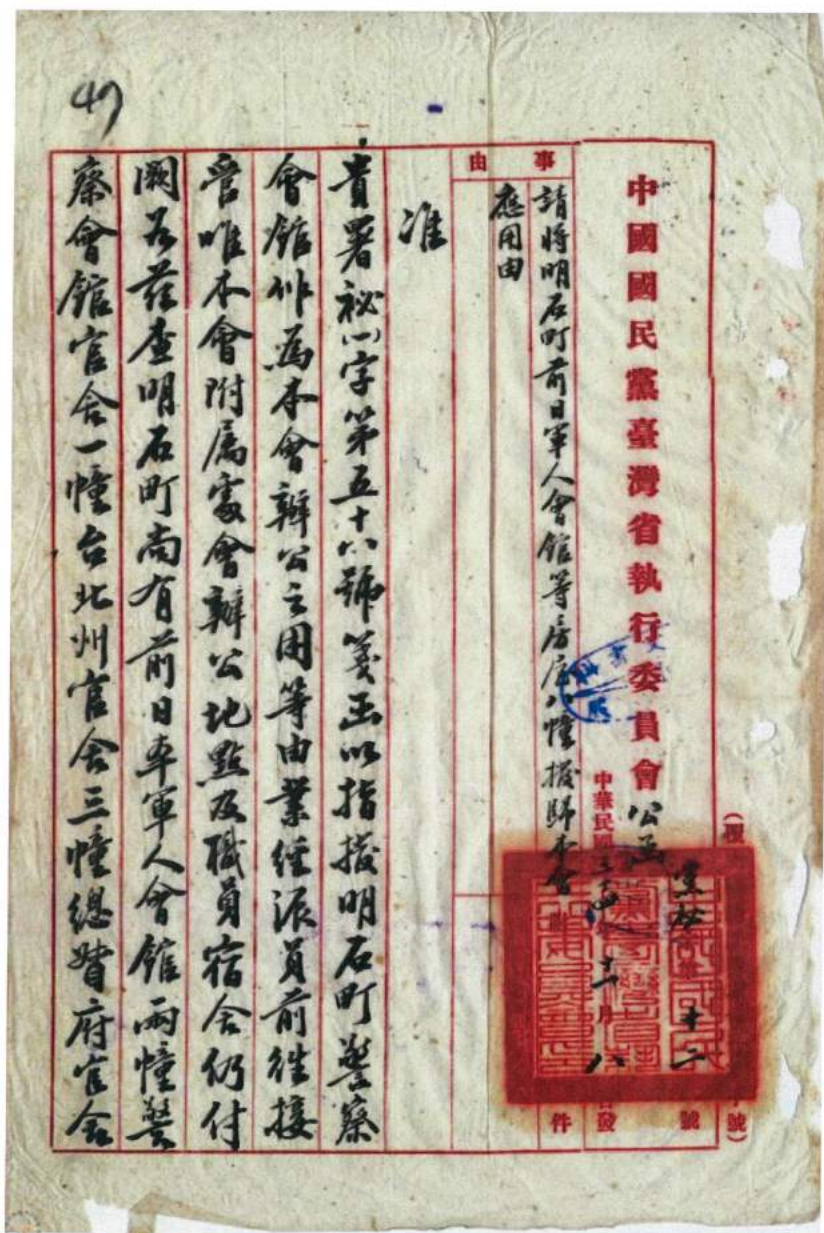 49
中國國民黨臺灣省執行委員會公函
黨秘 字第十二號
中華民國三十四年十一月八日發
事由
請將明石町前日軍人會館等房屋八幢撥歸本會
應用由
附件
准
貴署祕(一)字第五十六號箋函以指撥明石町警察
會館作為本會辦公之用等由業經派員前往接
管唯本會附屬處會辦公地點及職員宿舍仍付
闕如茲查明石町尚有前日本軍人會館兩幢警
察會館官舍一幢台北州官舍三幢總督府官舍